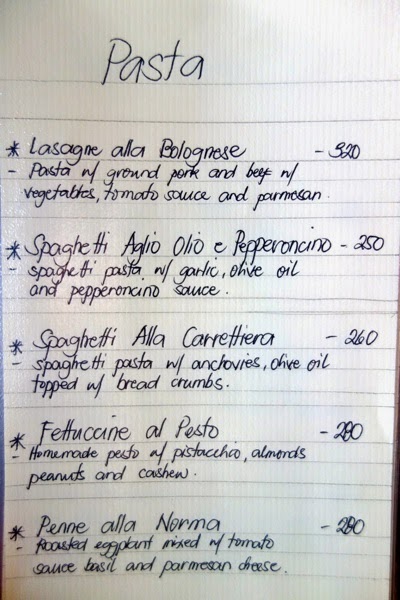 Pasta
* Lasagne alla Bolognese - 320
- Pasta w/ ground pork and beef w/
vegetables, tomato sauce and parmesan.
* Spaghetti Aglio Olio e Pepperoncino - 250
- spaghetti pasta w/ garlic, olive oil
and pepperoncino sauce.
* Spaghetti Alla Carrettiera - 260
- spaghetti pasta w/ anchovies, olive oil
topped w/ bread crumbs.
* Fettuccine al Pesto - 280
- Homemade pesto w/ pistacchio, almonds
peanuts and cashew.
* Penne alla Norma - 280
- Roasted eggplant mixed w/ tomato
sauce basil and parmesan cheese.